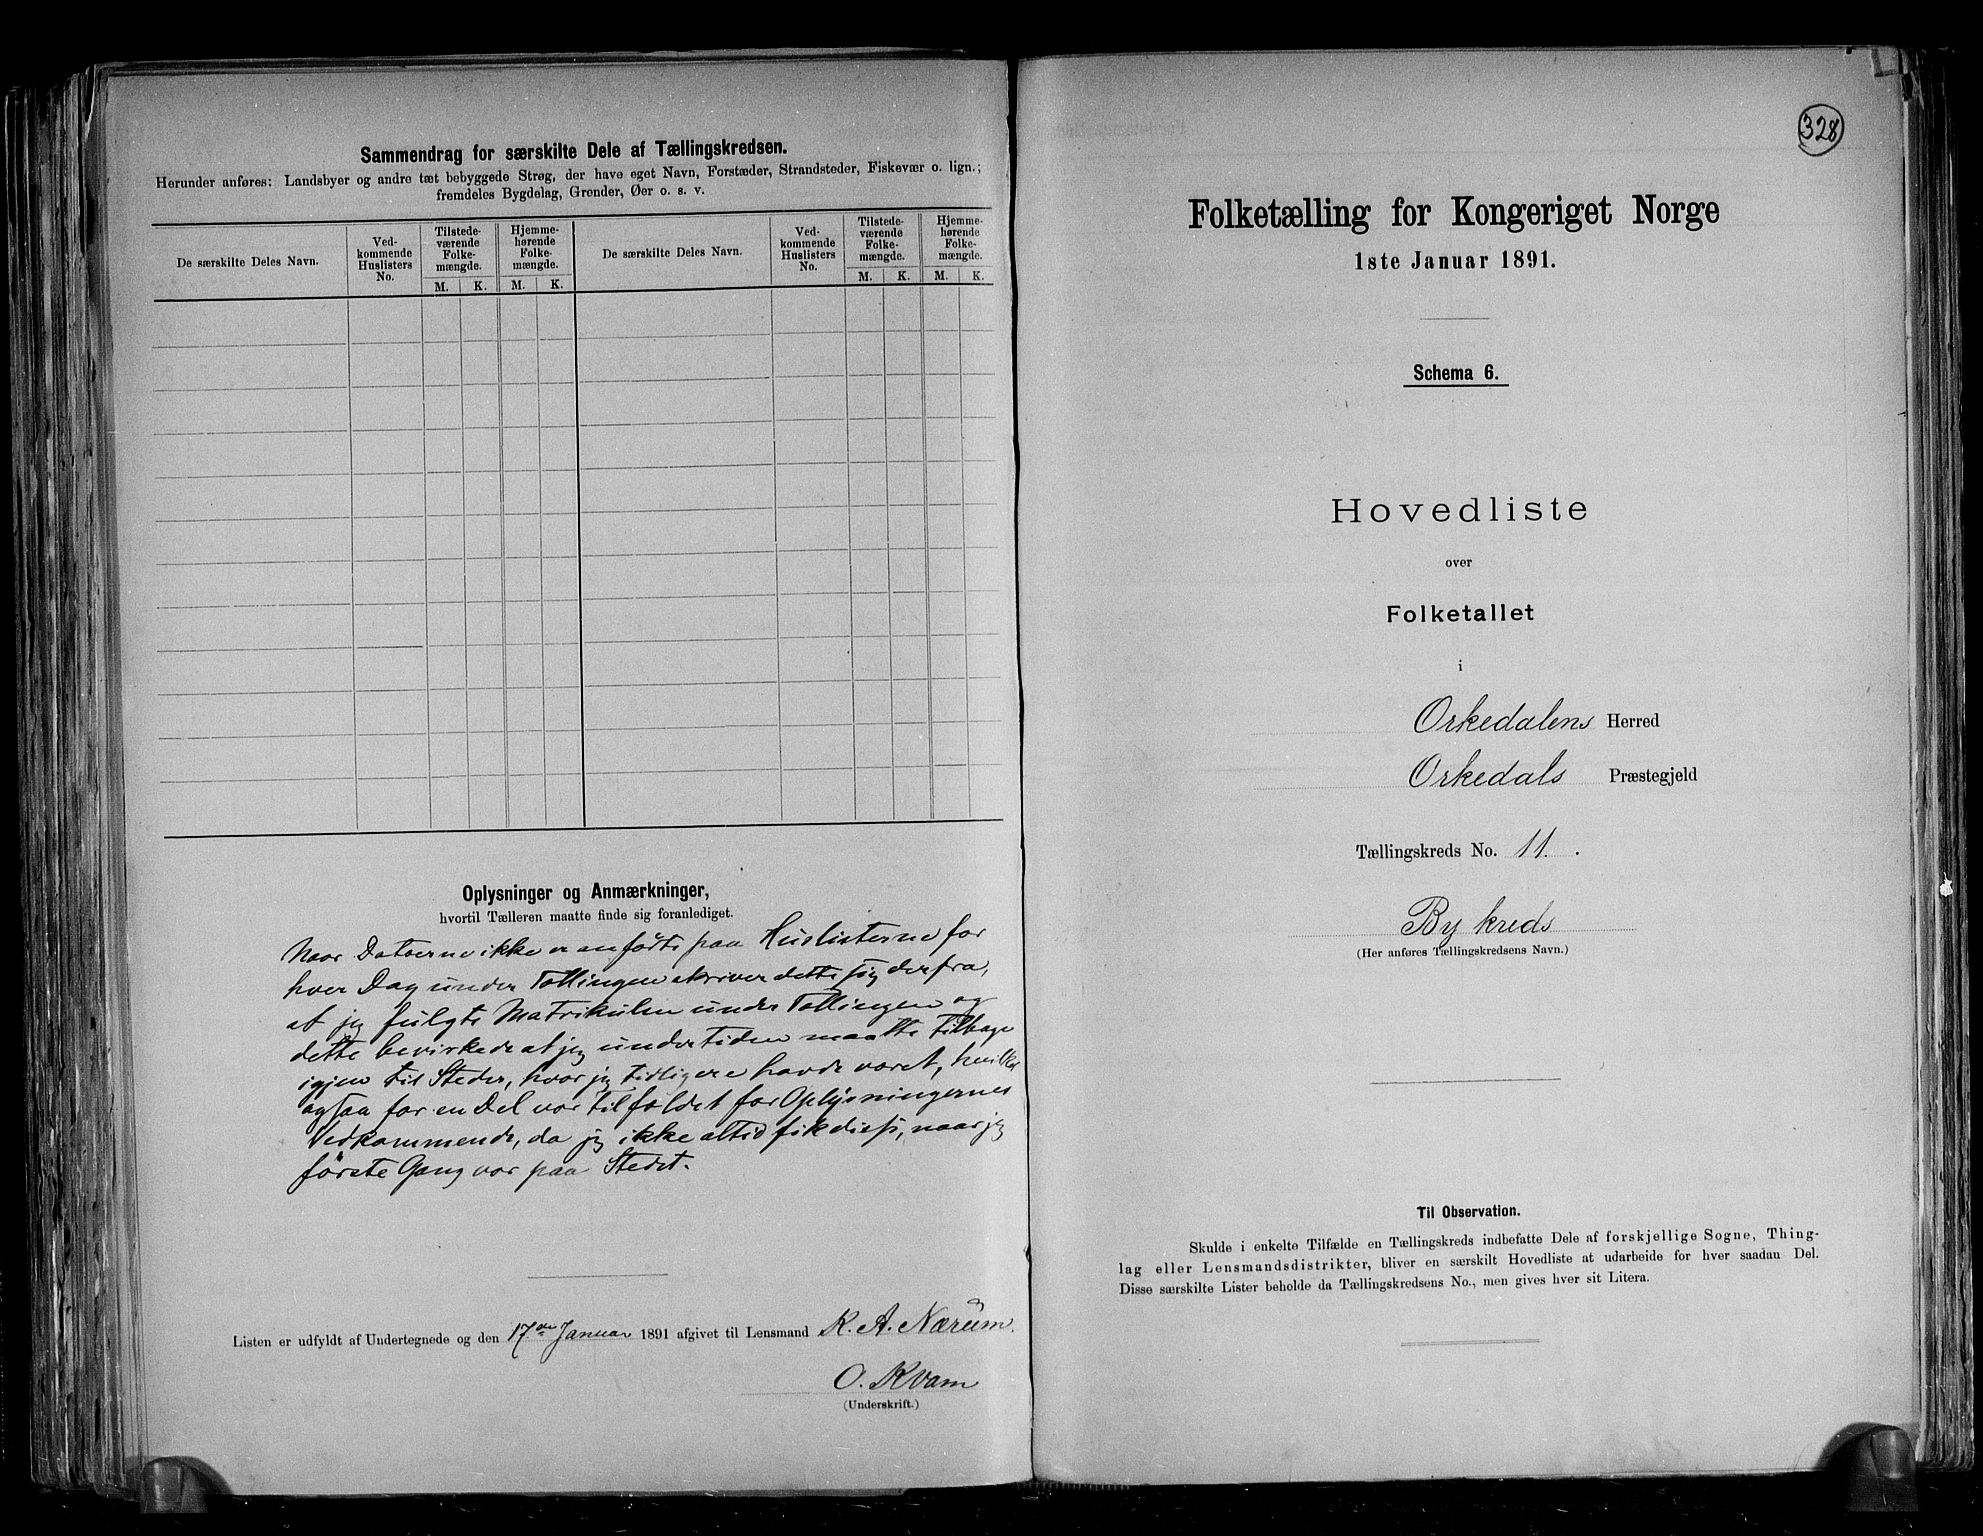 Sammendrag for særskilte Dele af Tællingskredsen.
Herunder anføres: Landsbyer og andre tæt bebyggede Strøg, der have eget Navn, Forstæder, Strandsteder, Fiskevær o. lign.;
fremdeles Bygdelag, Grender, Øer o. s. v.
De særskilte Deles Navn.
Ved-
kommende
Huslisters
No.
Tilstede-
værende
Folke-
mængde.
M. K.
Hjemme-
hørende
Folke-
mængde.
M. K.
De særskilte Deles Navn.
Ved-
kommende
Huslisters
No.
Tilstede-
værende
Folke-
mængde.
M. K.
Hjemme-
hørende
Folke-
mængde.
M. K.
Oplysninger og Anmærkninger,
hvortil Tælleren maatte finde sig foranlediget.
Naar Datoerne ikke er anførte paa Huslisterne for
hver Dag under Tællingen skriver dette sig derfra,
at jeg fulgte Matrikulen under Tællingen og
dette bevirkede at jeg undertiden maatte tilbage
igjen til Steder, hvor jeg tidligere havde været, hvilket
ogsaa for en Del var tilfældet for Oplysningernes
Vedkommende, da jeg ikke altid fik disse, naar jeg
første Gang var paa Stedet.
Listen er udfyldt af Undertegnede og den 17de Januar 1891 afgivet til Lensmand K. A. Nærum.
O. Kvam
(Underskrift.)
328
Folketælling for Kongeriget Norge
1ste Januar 1891.
Schema 6.
Hovedliste
over
Folketallet
i
Orkedalens Herred
Orkedals Præstegjeld
Tællingskreds No. 11.
By kreds
(Her anføres Tællingskredsens Navn.)
Til Observation.
Skulde i enkelte Tilfælde en Tællingskreds indbefatte Dele af forskjellige Sogne, Thing-
lag eller Lensmandsdistrikter, bliver en særskilt Hovedliste at udarbeide for hver saadan Del.
Disse særskilte Lister beholde da Tællingskredsens No., men gives hver sit Litera.